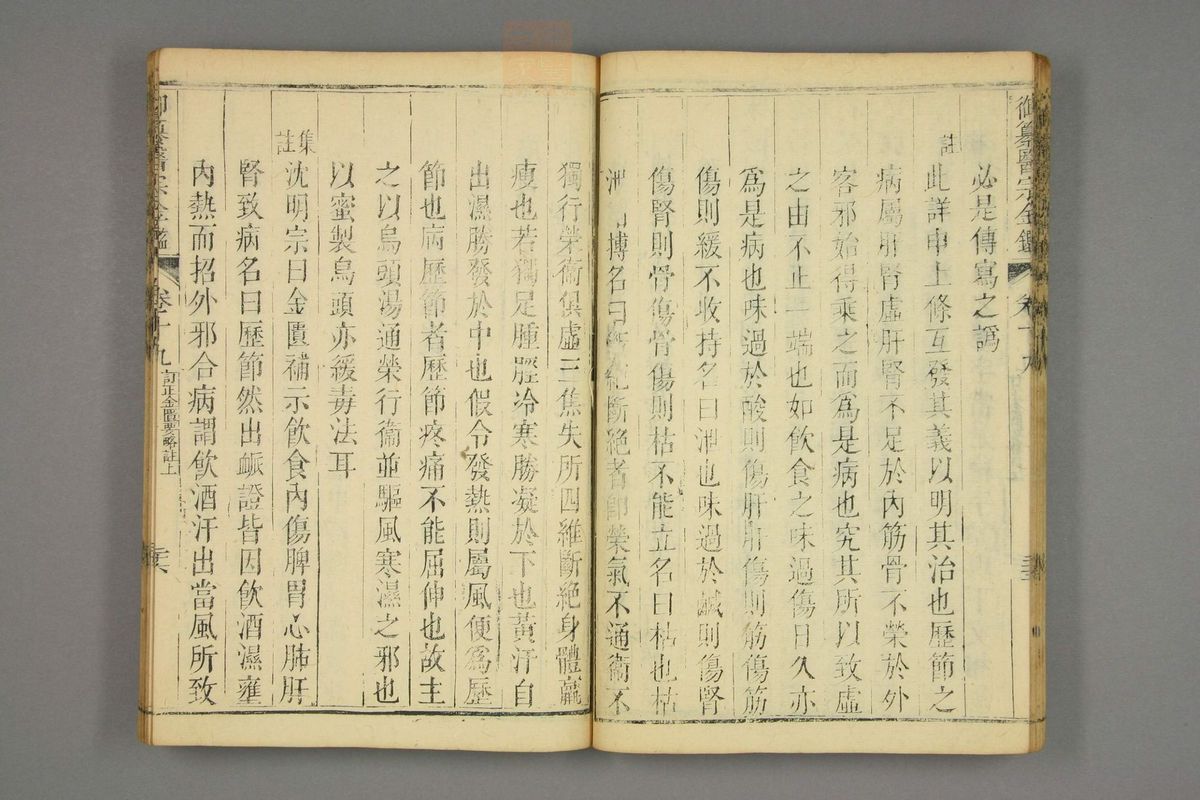 御纂醫宗金鑑
必是傳寫之譌
註
此詳申上條互發其義以明其治也歷節之
病屬肝腎虛肝腎不足於內筋骨不榮於外
客邪始得乘之而為是病也究其所以致虛
之由不止一端也如飲食之味過傷日久亦
為是病也味過於酸則傷肝肝傷則筋傷筋
傷則緩不收持名曰泄也味過於鹹則傷腎
傷腎則骨傷骨傷則枯不能立名曰枯也枯
泄相摶名曰斷絕斷絕者卽榮氣不通衞不
獨行榮衞俱虛三焦失所四維斷絕身體羸
瘦也若獨足腫脛冷寒勝凝於下也黃汗自
出濕勝發於中也假令發熱則屬風便為歷
節也病歷節者歷節疼痛不能屈伸也故主
之以烏頭湯通榮行衞並驅風寒濕之邪也
以蜜製烏頭亦緩毒法耳
集註
沈明宗曰金匱補示飲食內傷脾胃心肺肝
腎致病名曰歷節然出衇證皆因飲酒濕壅
內熱而招外邪合病謂飲酒汗出當風所致
御纂醫宗金鑑 卷十九 訂正金匱要略註上